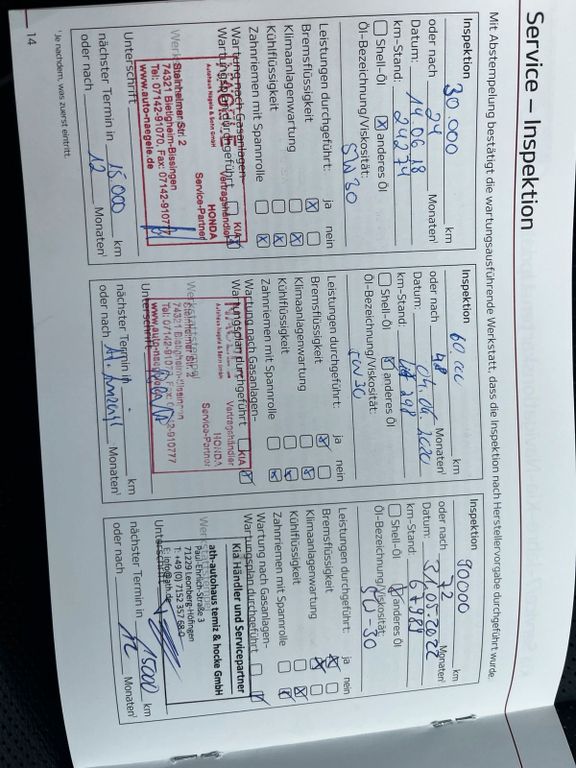 Service – Inspektion
Mit Abstempelung bestätigt die wartungsausführende Werkstatt, dass die Inspektion nach Herstellervorgabe durchgeführt wurde.
Inspektion
30.000 km
oder nach 24 Monaten¹
Datum: 14.06.18
km-Stand: 24274
Shell-Öl anderes Öl
Öl-Bezeichnung/Viskosität:
5W30
Leistungen durchgeführt: ja nein
Bremsflüssigkeit
Klimaanlagenwartung
Kühlflüssigkeit
Zahnriemen mit Spannrolle
Wartung nach Gasanlagen-
Wartungsplan durchgeführt
KIA
Vertragshändler
HONDA
Service-Partner
Autohaus Nägele & Sohn GmbH
Steinheimer Str. 2
74321 Bietigheim-Bissingen
Tel: 07142-91070, Fax: 07142-910777
www.auto-naegele.de
Unterschrift
nächster Termin in 15000 km
oder nach 12 Monaten¹
Inspektion
km
oder nach 48 Monaten¹
Datum: 04.06.2020
km-Stand:
Shell-Öl anderes Öl
Öl-Bezeichnung/Viskosität:
5W30
Leistungen durchgeführt: ja nein
Bremsflüssigkeit
Klimaanlagenwartung
Kühlflüssigkeit
Zahnriemen mit Spannrolle
Wartung nach Gasanlagen-
Wartungsplan durchgeführt
KIA
Vertragshändler
HONDA
Service-Partner
Autohaus Nägele & Sohn GmbH
Werkstattstempel
Steinheimer Str. 2
74321 Bietigheim-Bissingen
Tel: 07142-91070, Fax: 07142-910777
www.auto-naegele.de
Unterschrift
nächster Termin in km
oder nach Monaten¹
Inspektion
90000 km
oder nach 72 Monaten¹
Datum: 31.05.2022
km-Stand: 67984
Shell-Öl anderes Öl
Öl-Bezeichnung/Viskosität:
Leistungen durchgeführt: ja nein
Bremsflüssigkeit
Klimaanlagenwartung
Kühlflüssigkeit
Zahnriemen mit Spannrolle
Wartung nach Gasanlagen-
Wartungsplan durchgeführt
Kia Händler und Servicepartner
ath-autohaus temiz & hocke GmbH
Paul-Ehrlich-Straße 3
71229 Leonberg-Höfingen
T: +49 (0) 7152 357 68-0
Unterschrift
nächster Termin in 15000 km
oder nach 12 Monaten¹
¹ Je nachdem, was zuerst eintritt.
14